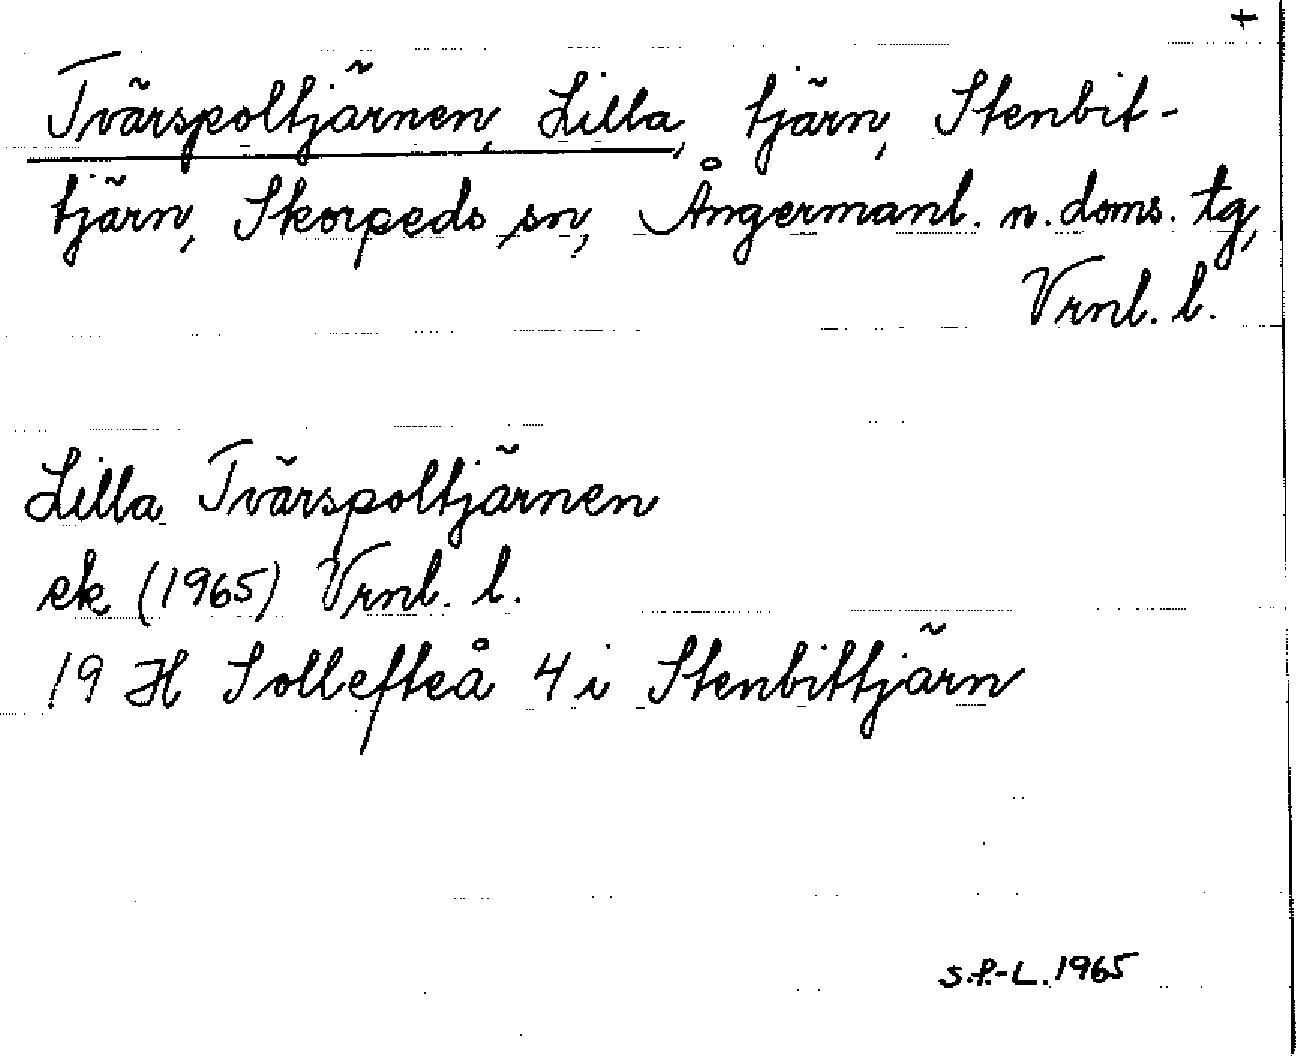 +
Tvärspoltjärnen, Lilla, tjärn, Stenbit-
tjärn, Skorpeds sn, Ångermanl. n. doms. tg,
Vrnl. l.
Lilla Tvärspoltjärnen
ek (1965) Vrnl. l.
19 H Sollefteå 4 i Stenbittjärn
S.P.-L. 1965